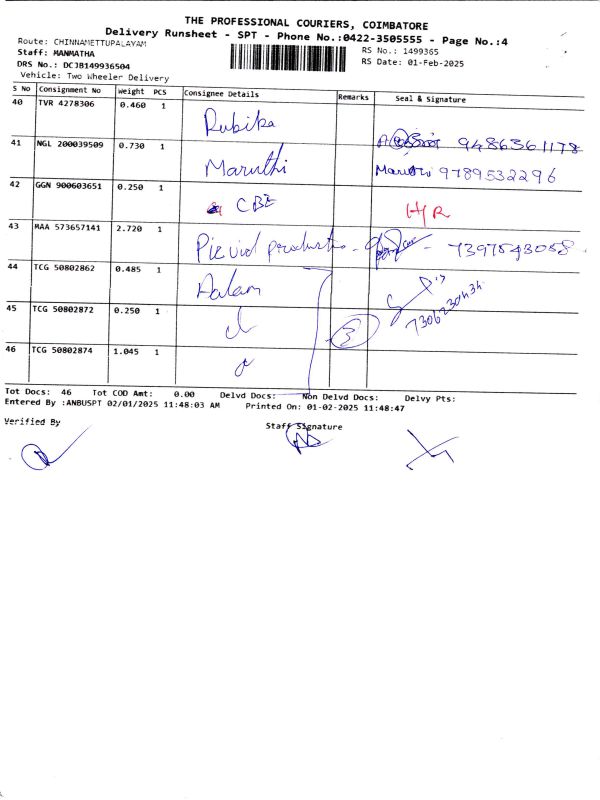 THE PROFESSIONAL COURIERS, COIMBATORE
Delivery Runsheet - SPT - Phone No.:0422-3505555 - Page No.:4
Route: CHINNAMETTUPALAYAM
Staff: MANMATHA
RS No.: 1499365
DRS No.: DCJB149936504
RS Date: 01-Feb-2025
Vehicle: Two Wheeler Delivery
S No Consignment No Weight PCS Consignee Details Remarks Seal & Signature
40 TVR 4278306 0.460 1 Rubika 9486361178
41 NGL 200039509 0.730 1 Maruthi Maruthi 9789532296
42 GGN 900603651 0.250 1 CBE H/R
43 MAA 573657141 2.720 1 7397543058
44 TCG 50802862 0.485 1 Aalam
45 TCG 50802872 0.250 1 3
46 TCG 50802874 1.045 1
Tot Docs: 46 Tot COD Amt: 0.00 Delvd Docs: Non Delvd Docs: Delvy Pts:
Entered By :ANBUSPT 02/01/2025 11:48:03 AM Printed On: 01-02-2025 11:48:47
Verified By
Staff Signature